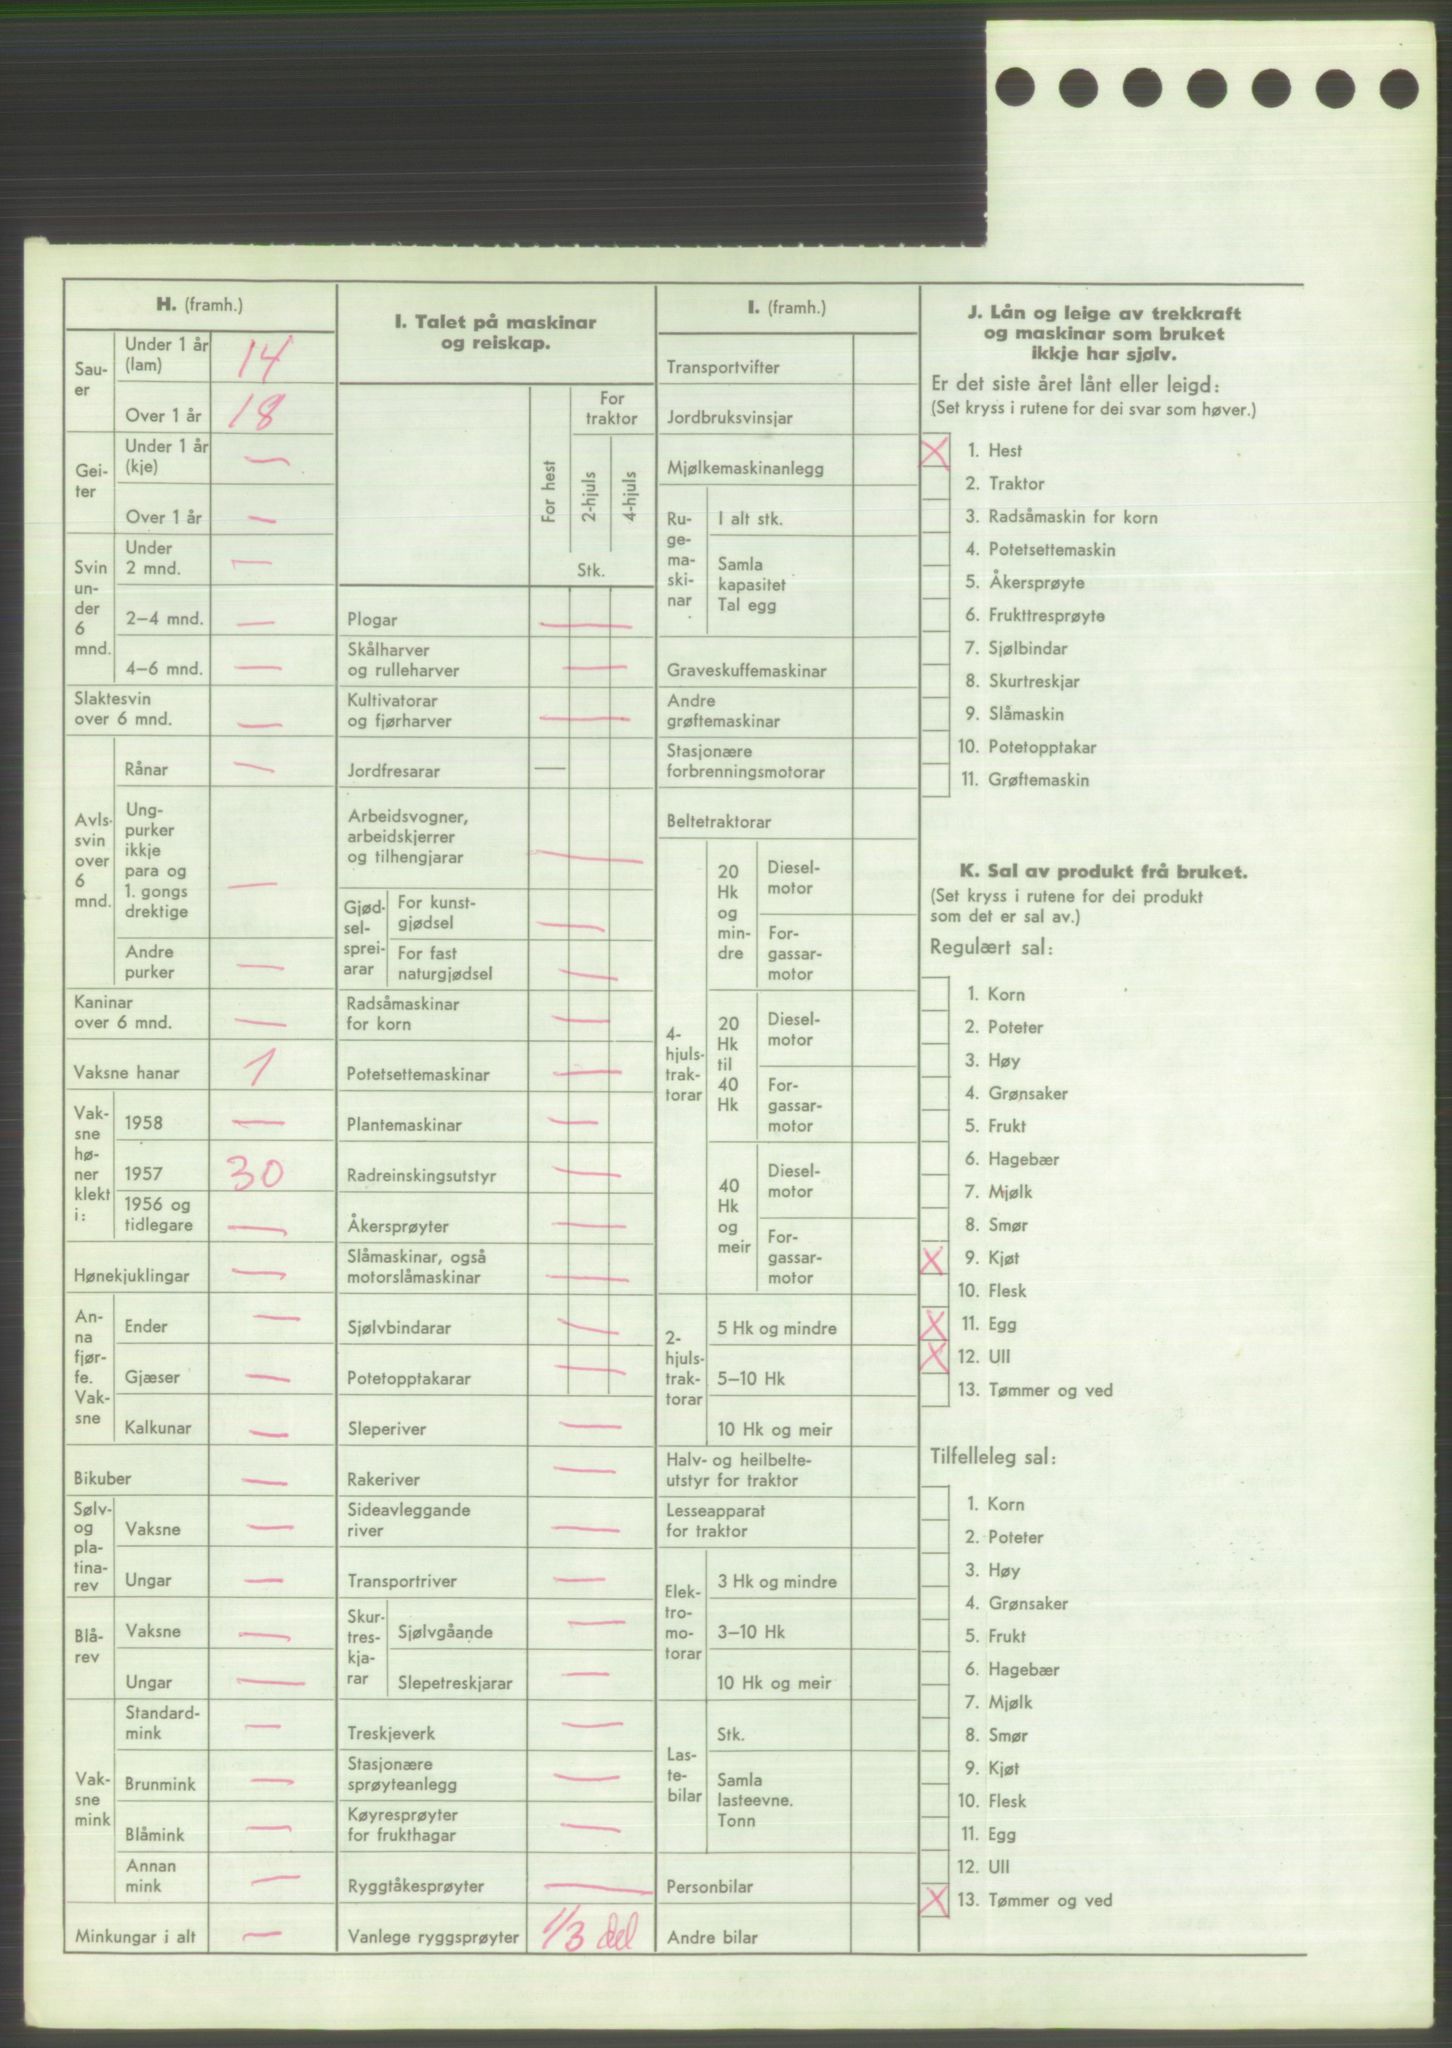 H. (framh.)
Sau-
er
Under 1 år
(lam) 14
Over 1 år 18
Gei-
ter
Under 1 år
(kje) —
Over 1 år —
Svin
un-
der
6
mnd.
Under
2 mnd. —
2–4 mnd. —
4–6 mnd. —
Slaktesvin
over 6 mnd. —
Avls-
svin
over
6
mnd.
Rånar —
Ung-
purker
ikkje
para og
1. gongs
drektige —
Andre
purker —
Kaninar
over 6 mnd. —
Vaksne hanar 1
Vak-
sne
hø-
ner
klekt
i:
1958 —
1957 30
1956 og
tidlegare —
Hønekjuklingar —
An-
na
fjør-
fe.
Vak-
sne
Ender —
Gjæser —
Kalkunar —
Bikuber —
Sølv-
og
pla-
tina-
rev
Vaksne —
Ungar —
Blå-
rev
Vaksne —
Ungar —
Vak-
sne
mink
Standard-
mink —
Brunmink —
Blåmink —
Annan
mink —
Minkungar i alt —
I. Talet på maskinar
og reiskap.
For hest
For
traktor
2-hjuls
4-hjuls
Stk.
Plogar —
Skålharver
og rulleharver —
Kultivatorar
og fjørharver —
Jordfresarar —
Arbeidsvogner,
arbeidskjerrer
og tilhengjarar —
Gjød-
sel-
sprei-
arar
For kunst-
gjødsel —
For fast
naturgjødsel —
Radsåmaskinar
for korn —
Potetsettemaskinar —
Plantemaskinar —
Radreinskingsutstyr —
Åkersprøyter —
Slåmaskinar, også
motorslåmaskinar —
Sjølvbindarar —
Potetopptakarar —
Sleperiver —
Rakeriver —
Sideavleggande
river —
Transportriver —
Skur-
tres-
kja-
rar
Sjølvgåande —
Slepetreskjarar —
Treskjeverk —
Stasjonære
sprøyteanlegg —
Køyresprøyter
for frukthagar —
Ryggtåkesprøyter —
Vanlege ryggsprøyter 1/3 del
I. (framh.)
Transportvifter
Jordbruksvinsjar
Mjølkemaskinanlegg
Ru-
ge-
ma-
ski-
nar
I alt stk.
Samla
kapasitet
Tal egg
Graveskuffemaskinar
Andre
grøftemaskinar
Stasjonære
forbrenningsmotorar
Beltetraktorar
4-
hjuls-
trak-
torar
20
Hk
og
min-
dre
Diesel-
motor
For-
gassar-
motor
20
Hk
til
40
Hk
Diesel-
motor
For-
gassar-
motor
40
Hk
og
meir
Diesel-
motor
For-
gassar-
motor
2-
hjuls-
trak-
torar
5 Hk og mindre
5–10 Hk
10 Hk og meir
Halv- og heilbelte-
utstyr for traktor
Lesseapparat
for traktor
Elek-
tro-
mo-
torar
3 Hk og mindre
3–10 Hk
10 Hk og meir
Las-
te-
bilar
Stk.
Samla
lasteevne.
Tonn
Personbilar
Andre bilar
J. Lån og leige av trekkraft
og maskinar som bruket
ikkje har sjølv.
Er det siste året lånt eller leigd:
(Set kryss i rutene for dei svar som høver.)
X 1. Hest
2. Traktor
3. Radsåmaskin for korn
4. Potetsettemaskin
5. Åkersprøyte
6. Frukttresprøyte
7. Sjølbindar
8. Skurtreskjar
9. Slåmaskin
10. Potetopptakar
11. Grøftemaskin
K. Sal av produkt frå bruket.
(Set kryss i rutene for dei produkt
som det er sal av.)
Regulært sal:
1. Korn
2. Poteter
3. Høy
4. Grønsaker
5. Frukt
6. Hagebær
7. Mjølk
8. Smør
X 9. Kjøt
10. Flesk
X 11. Egg
X 12. Ull
13. Tømmer og ved
Tilfelleleg sal:
1. Korn
2. Poteter
3. Høy
4. Grønsaker
5. Frukt
6. Hagebær
7. Mjølk
8. Smør
9. Kjøt
10. Flesk
11. Egg
12. Ull
X 13. Tømmer og ved